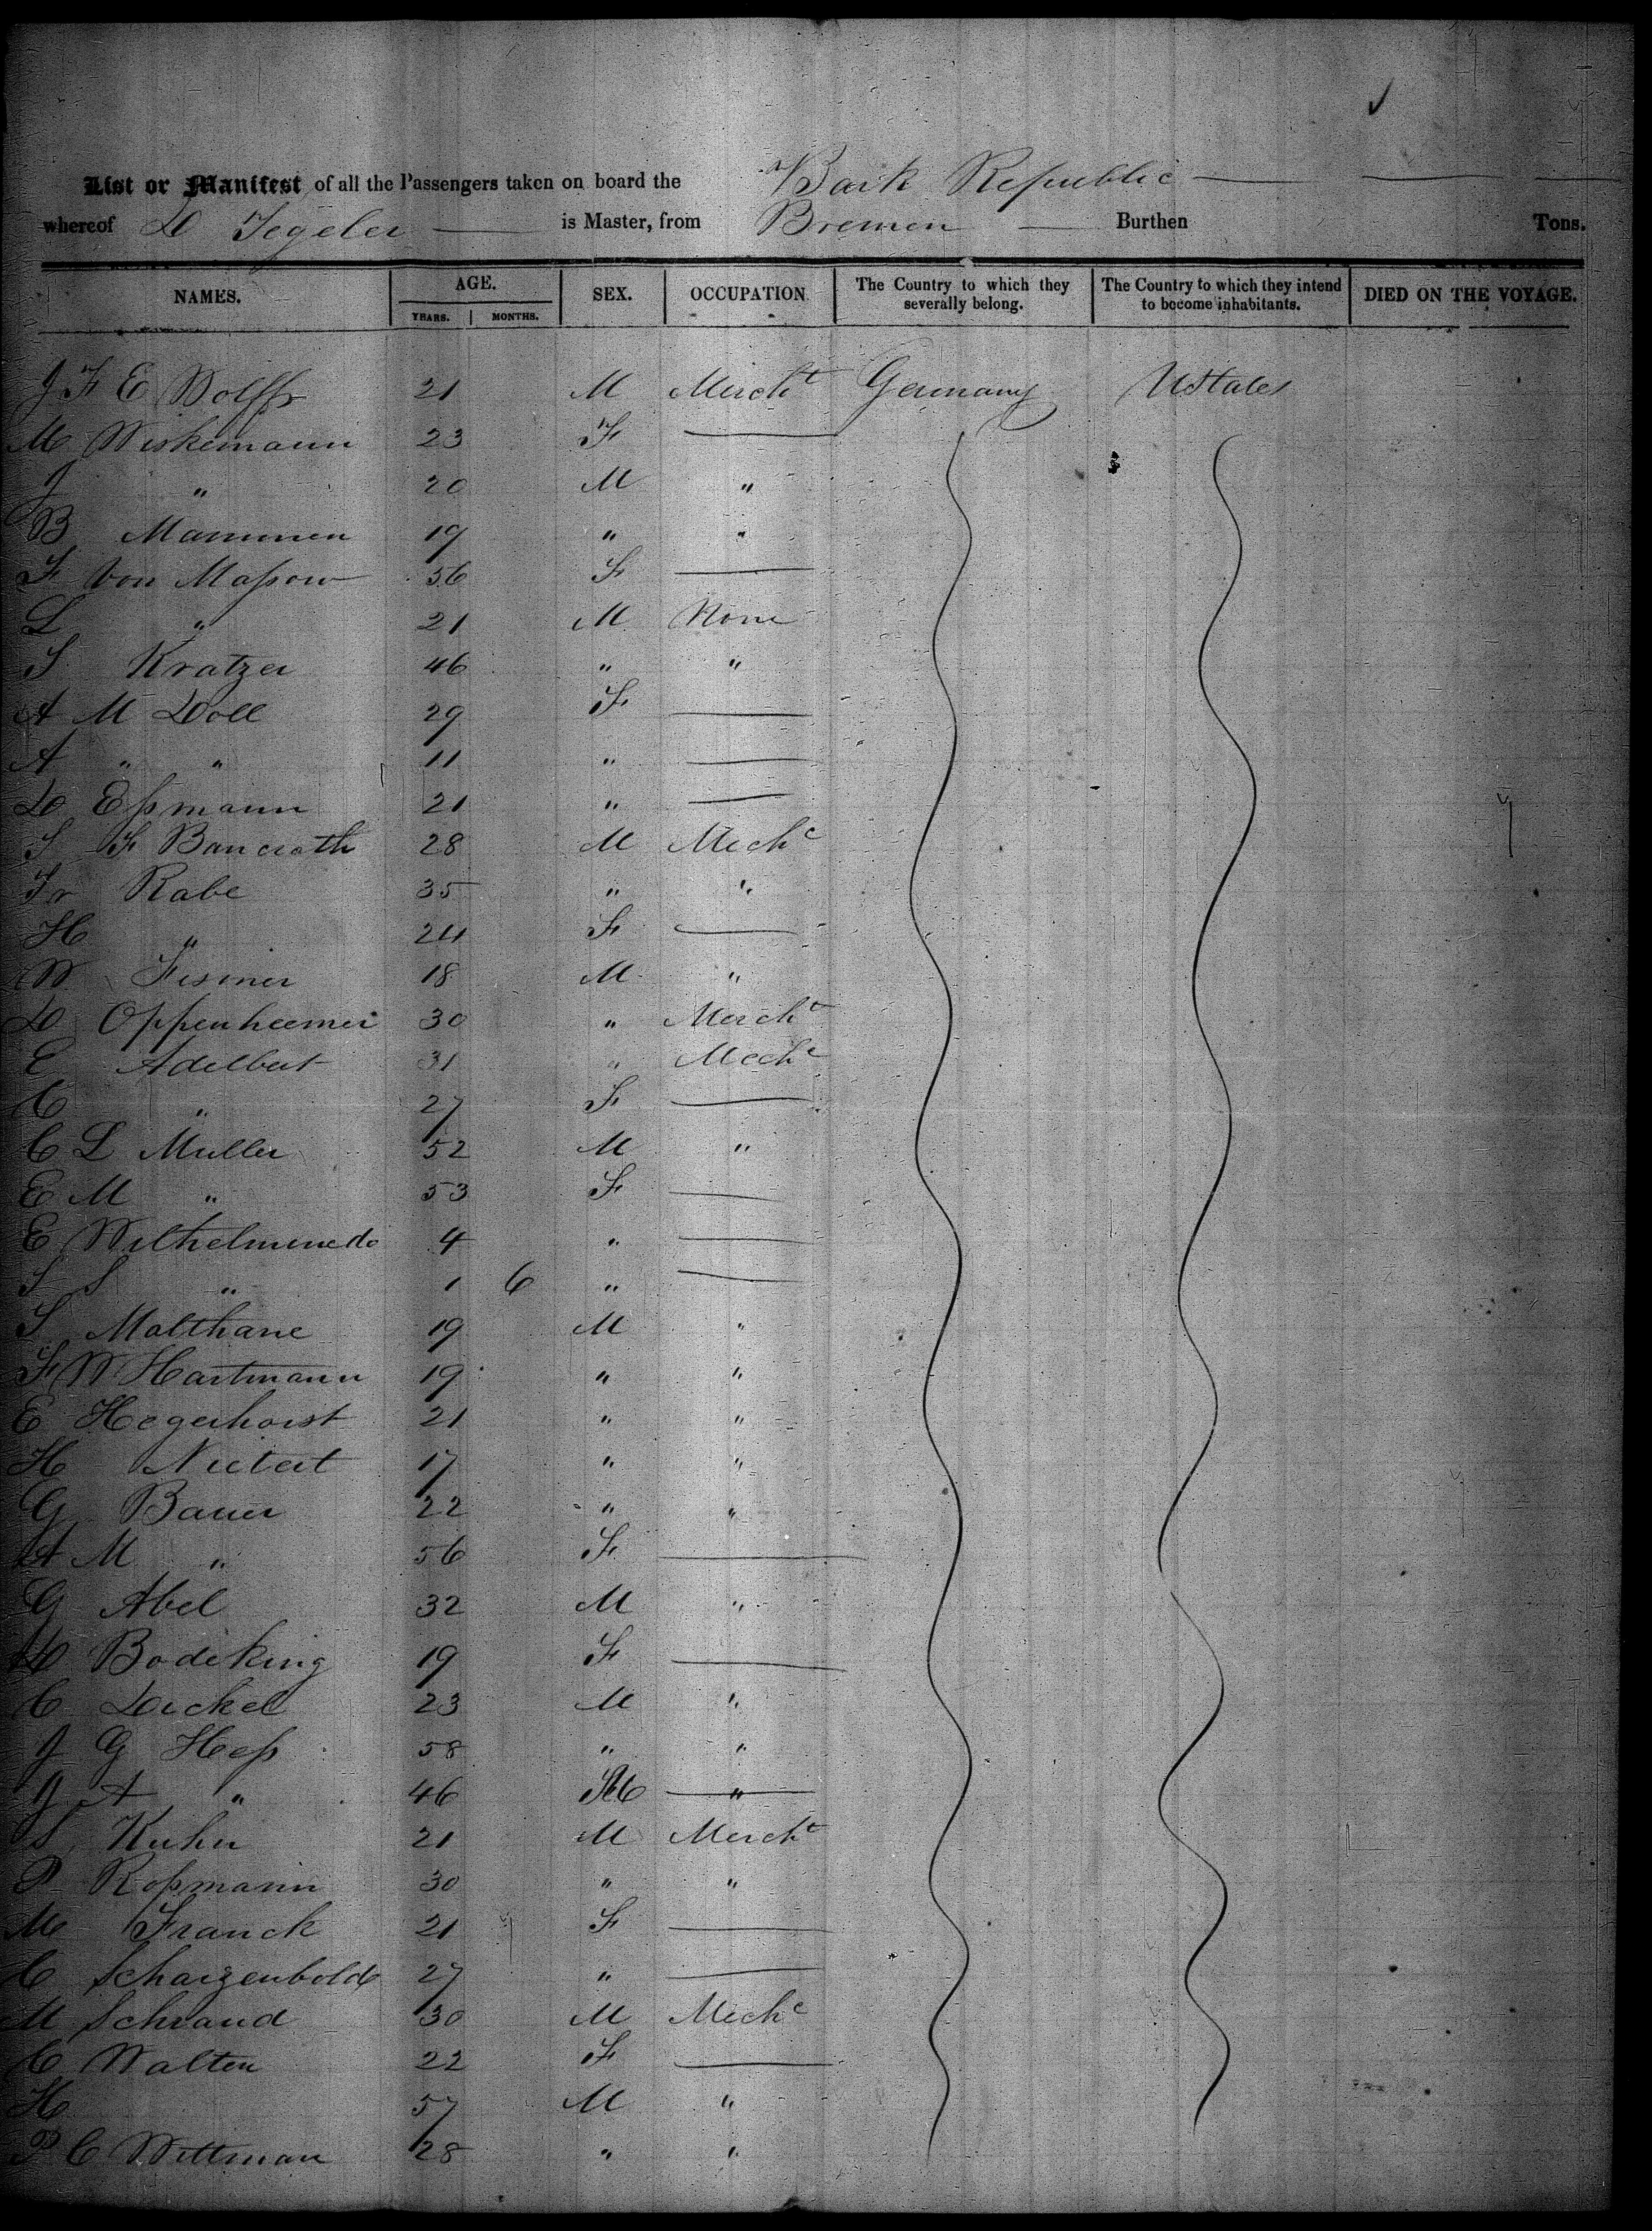 List or Manifest of all the Passengers taken on board the Bark Republic
whereof D Tegeler is Master, from Bremen Burthen Tons.
NAMES. AGE. SEX. OCCUPATION. The Country to which they severally belong. The Country to which they intend to become inhabitants. DIED ON THE VOYAGE.
YEARS. MONTHS.
J F E Wolff 21 M Mercht Germany UStates
M Wiskemann 23 F
J " 20 M "
B Mammen 19 " "
F Von Maßow 56 F
L " 21 M None
S Kratzer 46 " "
A M Doll 29 F
A " " 11 "
D Eßmann 21 "
S F Bancroth 28 M Mechc
Fr Rabe 35 " "
H " 24 F
W Fismer 18 M "
D Oppenheemer 30 " Mercht
E Adelbert 31 " Mechc
C " 27 F
C L Muller 52 M "
E M " 53 F
E Wilhelmine do 4 "
S S " 1 6 "
S Malthane 19 M "
F W Hartmann 19 " "
E Hegerhorst 21 " "
H Nietert 17 " "
G Bauer 22 " "
A M " 56 F
G Abel 32 M "
Bodeking 19 F
C Dickel 23 M "
J G Heß 58 " "
J A " 46 "
S Kuhn 21 M Mercht
P Roßmann 30 " "
M Franck 21 F
C Scharzenbold 27 "
M Schrand 30 M Mechc
C Walten 22 F
H 57 M "
P C Wittman 28 " "